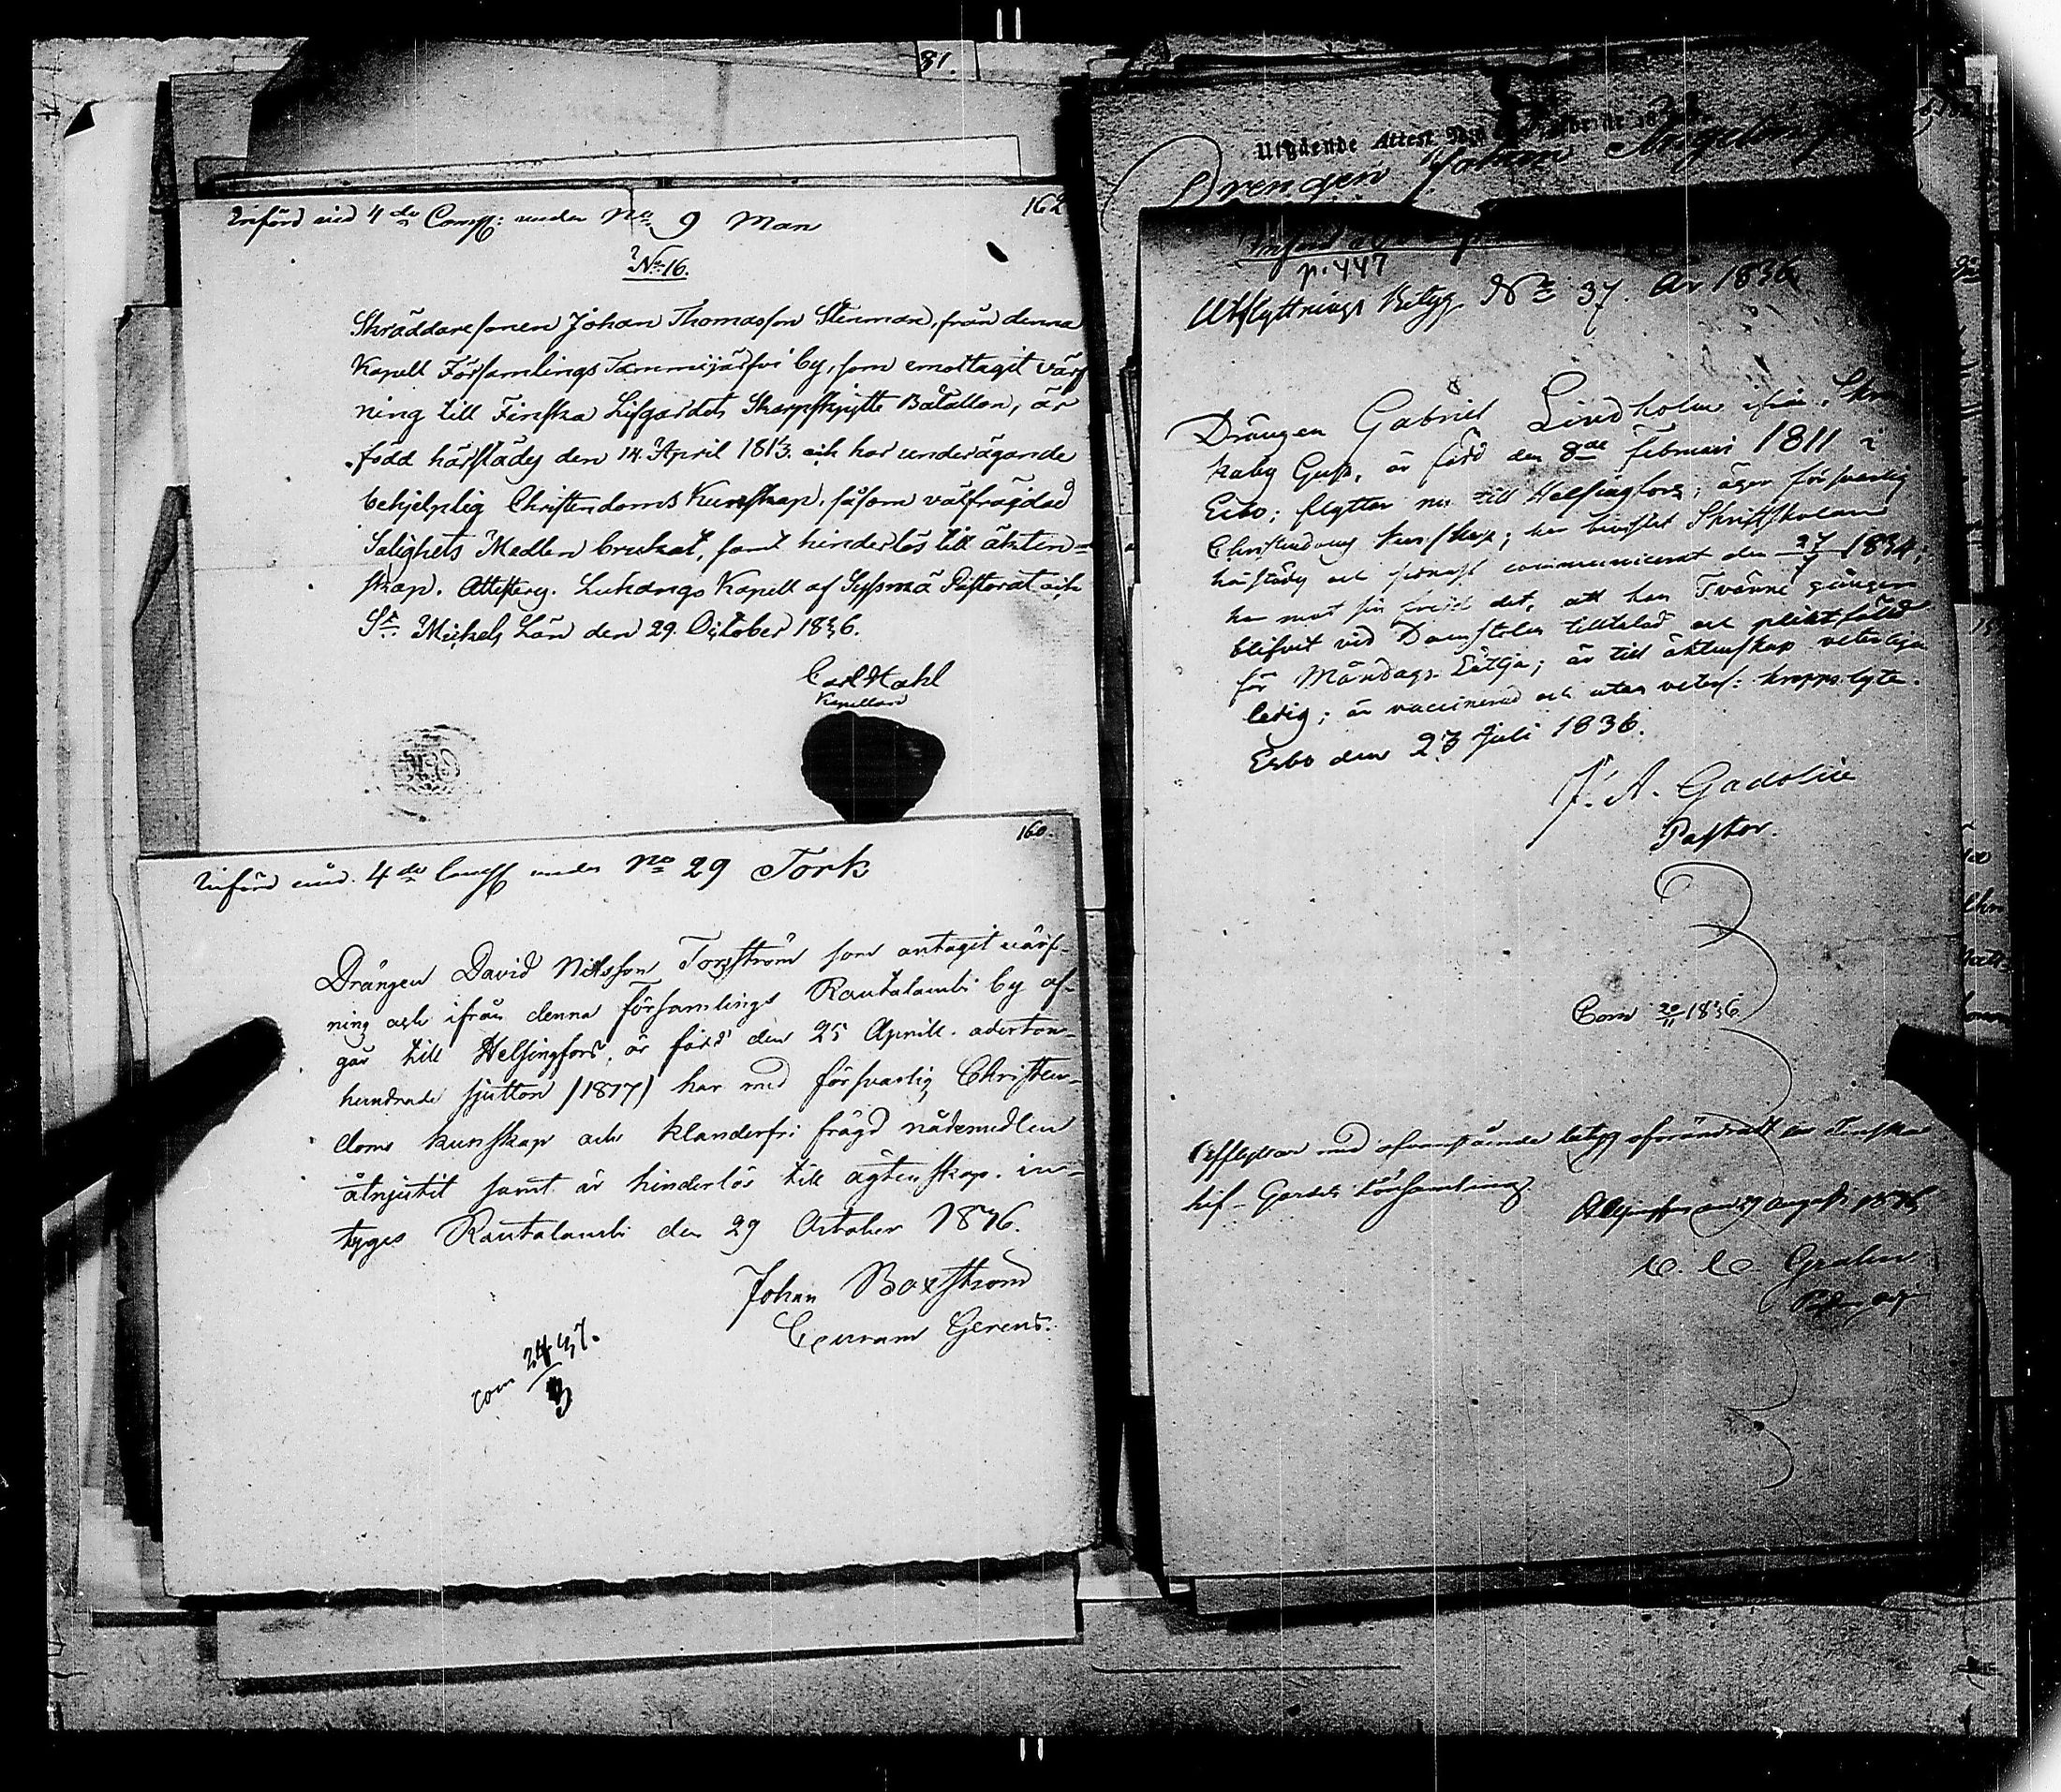 81.
162
Införd vid 4de Comp: under No 9 Man
No 16.
Skräddaresonen Johan Thomasson Stenman, från denna
Kapell Församlings Tammijärfvi by, som emottagit värf
ning till Finska Lifgardets Skarpskytte Batallon, är
född härstädes den 14. April 1813. och har underägande
behjelplig Christendoms Kunskap, såsom välfrägdad
Salighets Medlen brukat, samt hinderlös till äkten-
skap. Attesteras. Luhango Kapell af Sysmä Pastorat och
St Michels Län den 29. October 1836.
Carl Hahl
Kapellan
160.
Införd vid 4de Comp under No 29 Tork
Drängen David Nilsson Torström som antagit värf-
ning och ifrån denna församlings Rautalambi by af-
går till Helsingfors, är född den 25 Aprill aderton-
hundrade sjutton (1817) har med försvarlig Christen-
doms kunskap och klanderfri frägd nådemedlen
åtnjutit samt är hinderlös till ägtenskap. in-
tyges Rautalambi den 29 October 1836.
Johan Boxström
Cpuram Gerens.
com 24/3 37.
Utgående Attest
Drengen Johan
p. 447
Utflyttnings Betyg No 37. År 1836
Drängen Gabriel Lindholm ifrån
kaby Gård, är född den 8de Februari 1811 i
Esbo; flyttar nu till Helsingfors; äger försvarlig
Christendoms kunskap; har bevistat Skriftskolan
härstädes och senast communicerat den 27/7 1834;
har mot sin frejd det, att han Tvänne gånger
blifvit vid Domstolen tilltalad och pliktfälld
för Måndags Lättja; är till äktenskap veterligen
ledig; är vaccinerad och utan veterl: kroppslyte.
Esbo den 23 Juli 1836.
J. A. Gadolin
Pastor.
Com 20/11 1836
Afflyttar med ofvanstående betyg oförändradt till Finska
Lif-Gardes Församling.
Helsingfors den 29 Augusti 1836